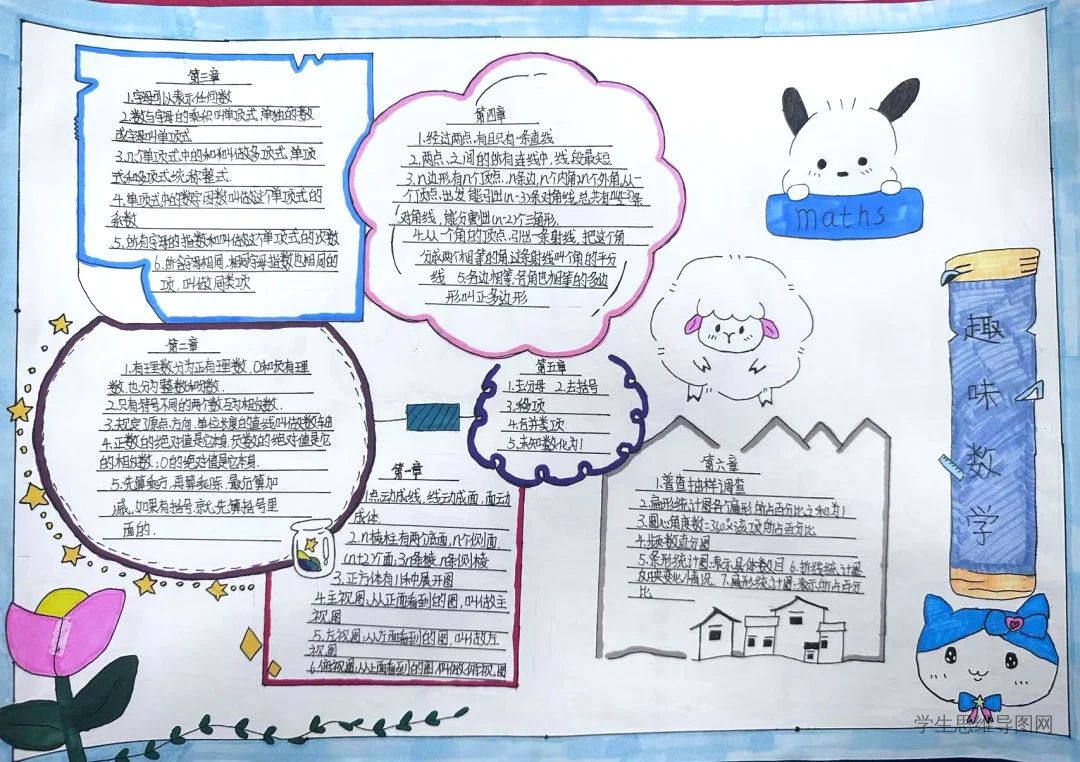 第三章
1.字母可以表示任何数
2.数与字母的乘积叫单项式,单独的数
或字母叫单项式
3.几个单项式中的和叫做多项式,单项
式和多项式统称整式
4.单项式中的数字因数叫做这个单项式的
系数
5.所有字母的指数和叫做这个单项式的次数
6.所含字母相同,相同字母指数也相同的
项,叫做同类项
第四章
1.经过两点,有且只有一条直线
2.两点之间的所有连线中,线段最短
3.n边形有n个顶点,n条边,n个内角,2n个外角,从一
个顶点出发能引出(n-3)条对角线,总共有条
对角线,能分割出(n-2)个三角形,
4.从一个角的顶点,引出一条射线,把这个角
分成两个相等的角,这条射线叫个角的平分
线 5.各边相等,各角也相等的多边
形叫正多边形
maths
趣味数学
第二章
1.有理数分为正有理数,0和负有理
数,也分为整数和分数.
2.只有符号不同的两个数互为相反数.
3.规定了原点,方向,单位长度的直线叫做数轴
4.正数的绝对值是它本身,负数的绝对值是它
的相反数;0的绝对值是它本身.
5.先算乘方,再算乘除,最后算加
减,如果有括号,就先算括号里
面的.
第五章
1.去分母 2.去括号
3.移项
4.合并类项
5.未知数化为1
第一章
1.点动成线,线动成面,面动
成体
2.n棱柱有两个底面,n个侧面
(n+2)个面,3n条棱 n条侧棱
3.正方体有11种展开图
4.主视图:从正面看到的图,叫做主
视图
5.左视图:从左面看到的图,叫做左
视图
6.俯视图:从上面看到的图,叫做俯视图
第六章
1.普查抽样调查
2.扇形统计图各个扇形所占百分比之和为1
3.圆心角度数=360°×该项所占百分比
4.频数直方图
5.条形统计图:表示具体数目 6.折线统计图
反映变化情况, 7.扇形统计图:表示所占百分
比
学生思维导图网